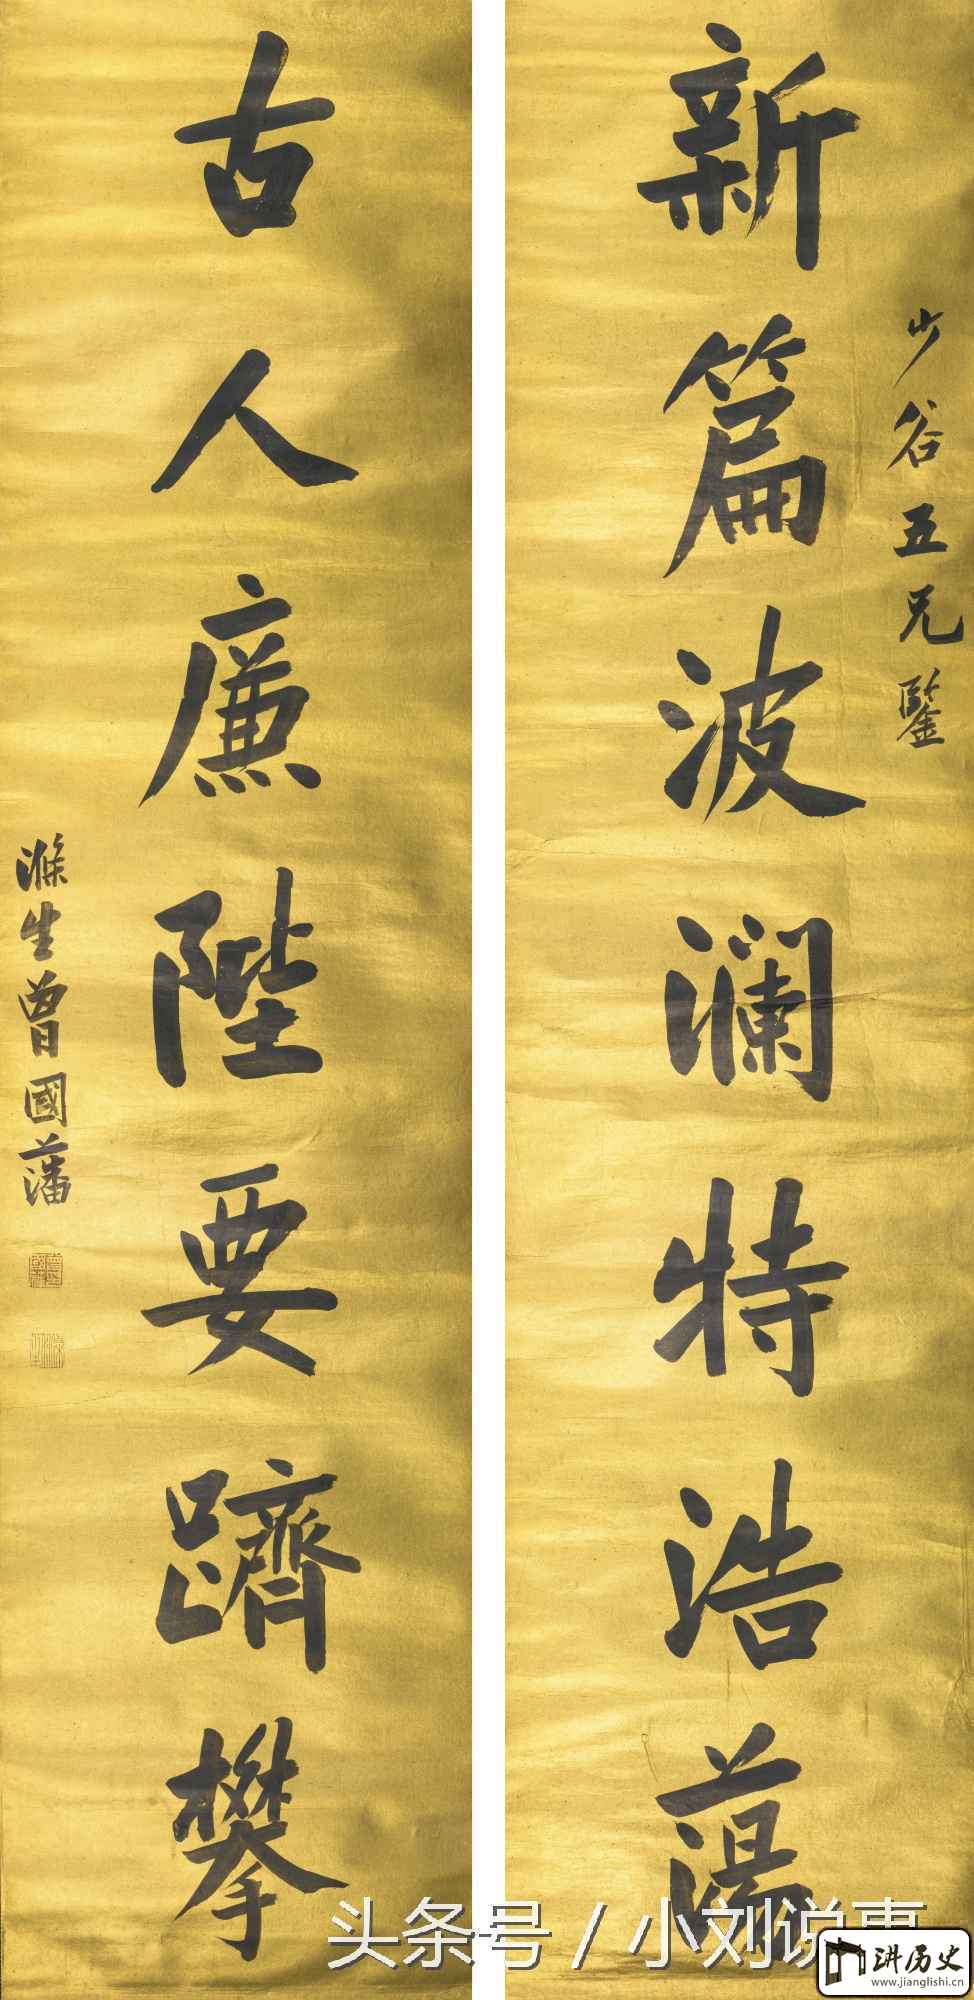 少谷五兄鑒
新篇波瀾特浩蕩
古人廉陛要躋攀
滌生曾國藩
头条号 / 小刘说事
讲历史
www.jianglishi.cn